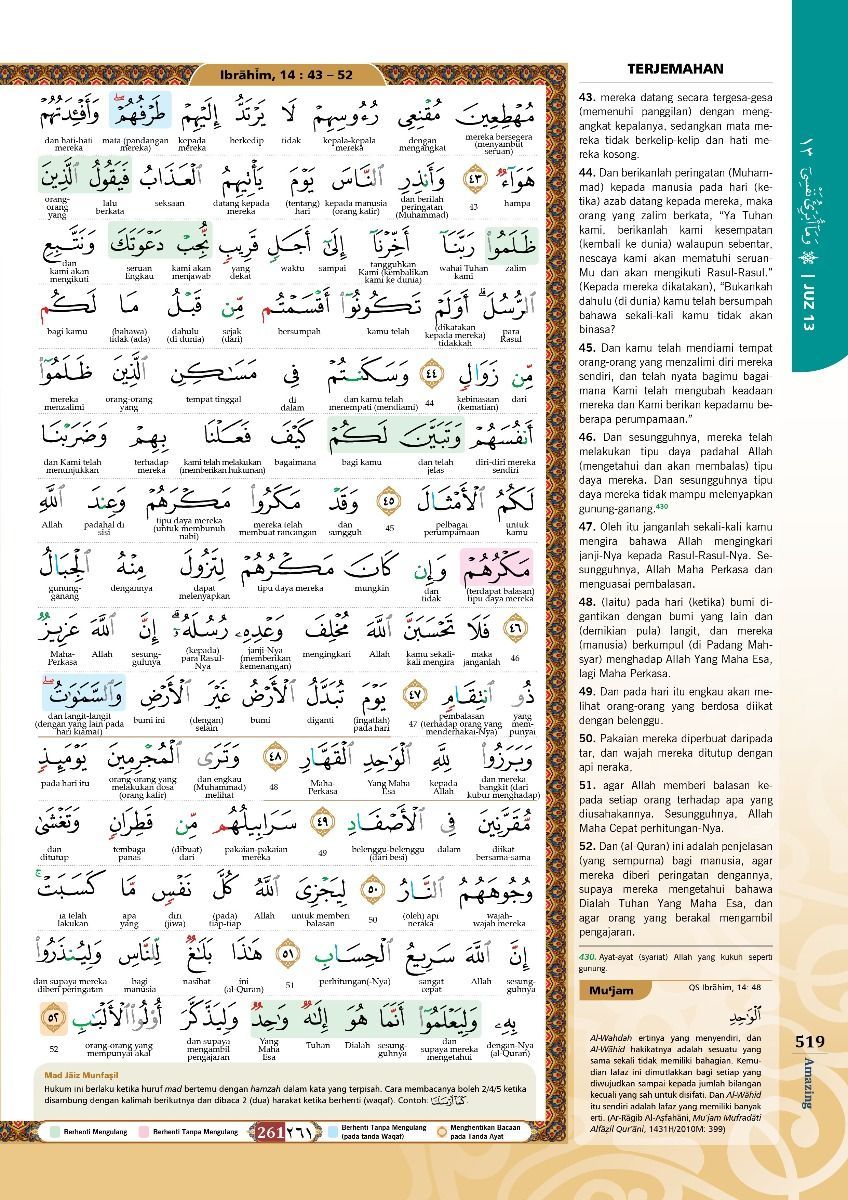 Ibrāhīm, 14 : 43 – 52
مُهْطِعِينَ مُقْنِعِى رُءُوسِهِمْ لَا يَرْتَدُّ إِلَيْهِمْ طَرْفُهُمْ ۖ وَأَفْـِٔدَتُهُمْ
mereka bersegera (menyambut seruan) dengan mengangkat kepala-kepala mereka tidak berkedip kepada mereka mata (pandangan mereka) dan hati-hati mereka
هَوَآءٌ ٤٣ وَأَنذِرِ ٱلنَّاسَ يَوْمَ يَأْتِيهِمُ ٱلْعَذَابُ فَيَقُولُ ٱلَّذِينَ
hampa 43 dan berilah peringatan (Muhammad) kepada manusia (orang kafir) (tentang) hari datang kepada mereka seksaan lalu berkata orang-orang yang
ظَلَمُوا۟ رَبَّنَآ أَخِّرْنَآ إِلَىٰٓ أَجَلٍ قَرِيبٍ نُّجِبْ دَعْوَتَكَ وَنَتَّبِعِ
zalim wahai Tuhan kami tangguhkan Kami (kembalikan kami ke dunia) sampai waktu yang dekat kami akan menjawab seruan Engkau dan kami akan mengikuti
ٱلرُّسُلَ ۗ أَوَلَمْ تَكُونُوٓا۟ أَقْسَمْتُم مِّن قَبْلُ مَا لَكُم
para Rasul (dikatakan kepada mereka) tidakkah kamu telah bersumpah sejak (dari) dahulu (di dunia) (bahawa) tidak (ada) bagi kamu
مِّن زَوَالٍ ٤٤ وَسَكَنتُمْ فِى مَسَـٰكِنِ ٱلَّذِينَ ظَلَمُوٓا۟
dari kebinasaan (kematian) 44 dan kamu telah menempati (mendiami) di dalam tempat tinggal orang-orang yang mereka menzalimi
أَنفُسَهُمْ وَتَبَيَّنَ لَكُمْ كَيْفَ فَعَلْنَا بِهِمْ وَضَرَبْنَا
diri-diri mereka sendiri dan telah jelas bagi kamu bagaimana kami telah melakukan (memberikan hukuman) terhadap mereka dan Kami telah menunjukkan
لَكُمُ ٱلْأَمْثَالَ ٤٥ وَقَدْ مَكَرُوا۟ مَكْرَهُمْ وَعِندَ ٱللَّهِ
untuk kamu pelbagai perumpamaan 45 dan sungguh mereka telah membuat rancangan tipu daya mereka (untuk membunuh nabi) padahal di sisi Allah
مَكْرُهُمْ وَإِن كَانَ مَكْرُهُمْ لِتَزُولَ مِنْهُ ٱلْجِبَالُ
(terdapat balasan) tipu daya mereka dan tidak mungkin tipu daya mereka dapat melenyapkan dengannya gunung-ganang
٤٦ فَلَا تَحْسَبَنَّ ٱللَّهَ مُخْلِفَ وَعْدِهِۦ رُسُلَهُۥٓ ۗ إِنَّ ٱللَّهَ عَزِيزٌ
46 maka janganlah kamu sekali-kali mengira Allah mengingkari janji-Nya (memberikan kemenangan) (kepada) para Rasul-Nya sesung-guhnya Allah Maha-Perkasa
ذُو ٱنتِقَامٍ ٤٧ يَوْمَ تُبَدَّلُ ٱلْأَرْضُ غَيْرَ ٱلْأَرْضِ وَٱلسَّمَـٰوَٰتُ ۖ
yang mem-punyai pembalasan (terhadap orang yang menderhakai-Nya) 47 (ingatlah) pada hari diganti bumi (dengan) selain bumi ini dan langit-langit (dengan yang lain pada hari kiamat)
وَبَرَزُوا۟ لِلَّهِ ٱلْوَٰحِدِ ٱلْقَهَّارِ ٤٨ وَتَرَى ٱلْمُجْرِمِينَ يَوْمَئِذٍ
dan mereka bangkit (dari kubur menghadap) kepada Allah Yang Maha Esa Maha-Perkasa 48 dan engkau (Muhammad) melihat orang-orang yang melakukan dosa (orang kafir) pada hari itu
مُّقَرَّنِينَ فِى ٱلْأَصْفَادِ ٤٩ سَرَابِيلُهُم مِّن قَطِرَانٍ وَتَغْشَىٰ
diikat bersama-sama dalam belenggu-belenggu (dari besi) 49 pakaian-pakaian mereka (dibuat) dari tembaga panas dan ditutup
وُجُوهَهُمُ ٱلنَّارُ ٥٠ لِيَجْزِىَ ٱللَّهُ كُلَّ نَفْسٍ مَّا كَسَبَتْ ۚ
wajah-wajah mereka (oleh) api neraka 50 untuk memberi balasan Allah (pada) tiap-tiap diri (jiwa) apa yang ia telah lakukan
إِنَّ ٱللَّهَ سَرِيعُ ٱلْحِسَابِ ٥١ هَـٰذَا بَلَـٰغٌ لِّلنَّاسِ وَلِيُنذَرُوا۟
sesung-guhnya Allah sangat cepat perhitungan(-Nya) 51 ini (al-Quran) nasihat bagi manusia dan supaya mereka diberi peringatan
بِهِۦ وَلِيَعْلَمُوٓا۟ أَنَّمَا هُوَ إِلَـٰهٌ وَٰحِدٌ وَلِيَذَّكَّرَ أُو۟لُوا۟ ٱلْأَلْبَـٰبِ ٥٢
dengan-Nya (al-Quran) dan supaya mereka mengetahui sesung-guhnya Dialah Tuhan Yang Maha Esa dan supaya mengambil pengajaran orang-orang yang mempunyai akal 52
Mad Jāiz Munfaṣil
Hukum ini berlaku ketika huruf mad bertemu dengan hamzah dalam kata yang terpisah. Cara membacanya boleh 2/4/5 ketika
disambung dengan kalimah berikutnya dan dibaca 2 (dua) harakat ketika berhenti (waqaf). Contoh: كَمَآ أَرْسَلْنَا
Berhenti Mengulang
Berhenti Tanpa Mengulang
261 ٢٦١
Berhenti Tanpa Mengulang
(pada tanda Waqaf)
Menghentikan Bacaan
pada Tanda Ayat
TERJEMAHAN
43. mereka datang secara tergesa-gesa
(memenuhi panggilan) dengan meng-
angkat kepalanya, sedangkan mata me-
reka tidak berkelip-kelip dan hati me-
reka kosong.
44. Dan berikanlah peringatan (Muham-
mad) kepada manusia pada hari (ke-
tika) azab datang kepada mereka, maka
orang yang zalim berkata, “Ya Tuhan
kami, berikanlah kami kesempatan
(kembali ke dunia) walaupun sebentar,
nescaya kami akan mematuhi seruan-
Mu dan akan mengikuti Rasul-Rasul.”
(Kepada mereka dikatakan), “Bukankah
dahulu (di dunia) kamu telah bersumpah
bahawa sekali-kali kamu tidak akan
binasa?
45. Dan kamu telah mendiami tempat
orang-orang yang menzalimi diri mereka
sendiri, dan telah nyata bagimu bagai-
mana Kami telah mengubah keadaan
mereka dan Kami berikan kepadamu be-
berapa perumpamaan.”
46. Dan sesungguhnya, mereka telah
melakukan tipu daya padahal Allah
(mengetahui dan akan membalas) tipu
daya mereka. Dan sesungguhnya tipu
daya mereka tidak mampu melenyapkan
gunung-ganang.430
47. Oleh itu janganlah sekali-kali kamu
mengira bahawa Allah mengingkari
janji-Nya kepada Rasul-Rasul-Nya. Se-
sungguhnya, Allah Maha Perkasa dan
menguasai pembalasan.
48. (Iaitu) pada hari (ketika) bumi di-
gantikan dengan bumi yang lain dan
(demikian pula) langit, dan mereka
(manusia) berkumpul (di Padang Mah-
syar) menghadap Allah Yang Maha Esa,
lagi Maha Perkasa.
49. Dan pada hari itu engkau akan me-
lihat orang-orang yang berdosa diikat
dengan belenggu.
50. Pakaian mereka diperbuat daripada
tar, dan wajah mereka ditutup dengan
api neraka,
51. agar Allah memberi balasan ke-
pada setiap orang terhadap apa yang
diusahakannya. Sesungguhnya, Allah
Maha Cepat perhitungan-Nya.
52. Dan (al Quran) ini adalah penjelasan
(yang sempurna) bagi manusia, agar
mereka diberi peringatan dengannya,
supaya mereka mengetahui bahawa
Dialah Tuhan Yang Maha Esa, dan
agar orang yang berakal mengambil
pengajaran.
430. Ayat-ayat (syariat) Allah yang kukuh seperti
gunung.
Mu‘jam
QS Ibrāhīm, 14: 48
ٱلْوَٰحِدِ
Al-Wahdah ertinya yang menyendiri, dan
Al-Wāhid hakikatnya adalah sesuatu yang
sama sekali tidak memiliki bahagian. Kemu-
dian lafaz ini dimutlakkan bagi setiap yang
diwujudkan sampai kepada jumlah bilangan
kecuali yang sah untuk disifati. Dan Al-Wāhid
itu sendiri adalah lafaz yang memiliki banyak
erti. (Ar-Rāgib Al-Aṣfahāni, Mu‘jam Mufradāti
Alfāẓil Qur’āni, 1431H/2010M: 399)
١٣ وَمَآ أُبَرِّئُ نَفْسِىٓ | JUZ 13
519
Amazing